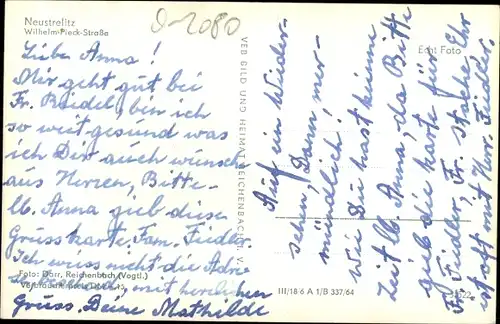 Neustrelitz
Wilhelm-Pieck-Straße
D-2080
Echt Foto
Liebe Anna!
Mir geht gut bei
Fr. Riedel, bin ich
so weit gesund was
ich Dir auch wünsche
aus Herzen, Bitte
lb. Anna gieb diese
Grusskarte Fam. Fiedler
Ich weiss nicht die Adre
mit herzlichen
Gruss. Deine Mathilde
Auf ein Wieder-
sehen, Dann mer-
mündlich!
wie Du hast keine
Zeit lb. Anna, da Bitte
gieb die Karte für
F. Fiedler, Fr. Ihr
ist oft mit Herr. Fiedler
VEB BILD UND HEIMAT REICHENBACH I. V.
Foto: Darr, Reichenbach (Vogtl.)
III/18/6 A 1/B 337/64